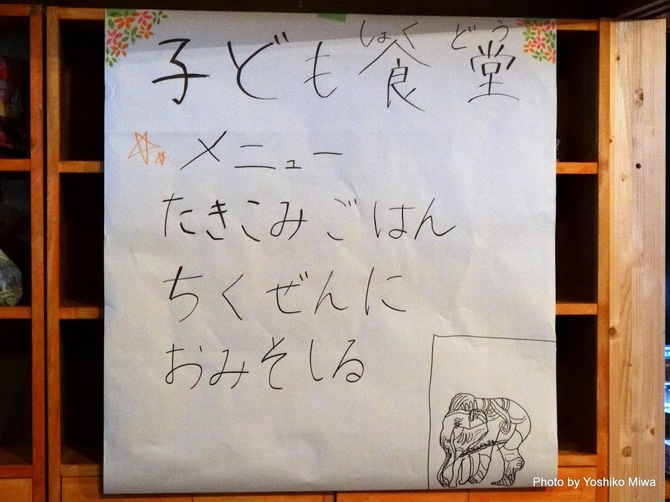 しょく どう
子ども食堂
メニュー
たきこみごはん
ちくぜんに
おみそしる
Photo by Yoshiko Miwa